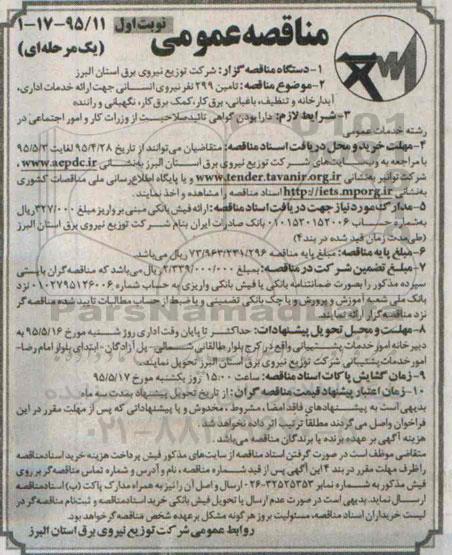 مناقصه عمومی
نوبت اول
۱-۱۷-۹۵/۱۱
(یک مرحله‌ای)
۱-دستگاه مناقصه گزار: شرکت توزیع نیروی برق استان البرز
۲-موضوع مناقصه: تامین ۲۹۹ نفر نیروی انسانی جهت ارائه خدمات اداری،
آبدارخانه و تنظیف، باغبانی، برق کار، کمک برق کار، نگهبانی و راننده
۳-شرایط لازم: دارا بودن گواهی تائید صلاحیت از وزارت کار و امور اجتماعی در
رشته خدمات عمومی
۴-مهلت خرید و محل دریافت اسناد مناقصه: متقاضیان می‌توانند از تاریخ ۹۵/۴/۲۸ لغایت ۹۵/۵/۲
با مراجعه به وب‌سایت‌های شرکت توزیع نیروی برق استان البرز به‌نشانی www.aepdc.ir،
شرکت توانیر به‌نشانی www.tender.tavanir.org.ir و یا پایگاه اطلاع‌رسانی ملی مناقصات کشوری
به‌نشانی http://iets.mporg.ir اسناد مناقصه را مشاهده و اخذ نمایند.
۵-مدارک مورد نیاز جهت دریافت اسناد مناقصه: ارائه فیش بانکی مبنی بر واریز مبلغ ۳۲۷/۰۰۰ ریال
به‌شماره حساب ۰۱۰۱۵۳۰۱۵۲۰۰۶ بانک صادرات ایران بنام شرکت توزیع نیروی برق استان البرز
(طی مدت زمان قید شده در بند ۴)
۶-مبلغ پایه مناقصه: مبلغ پایه مناقصه ۷۳/۹۶۳/۲۳۱/۲۹۶ ریال می‌باشد.
۷-مبلغ تضمین شرکت در مناقصه: بمبلغ ۲/۳۳۹/۰۰۰/۰۰۰ ریال می‌باشد که مناقصه گران بایستی
سپرده مذکور را بصورت ضمانتنامه بانکی یا فیش بانکی واریزی به حساب شماره ۰۱۰۲۷۹۵۱۲۶۰۰۶ نزد
بانک ملی شعبه آموزش و پرورش و یا چک بانکی تضمینی و یا ضبط از حساب مطالبات تایید شده مناقصه گر
نزد مناقصه گزار ارائه نمایند.
۸-مهلت و محل تحویل پیشنهادات: حداکثر تا پایان وقت اداری روز شنبه مورخ ۹۵/۵/۱۶ به
دبیرخانه امور خدمات پشتیبانی واقع در کرج بلوار طالقانی شمالی- پل آزادگان - ابتدای بلوار امام رضا-
امور خدمات پشتیبانی شرکت توزیع نیروی برق استان البرز تحویل نمایند.
۹-زمان گشایش پاکات اسناد مناقصه: ساعت ۱۵:۰۰ روز یکشنبه مورخ ۹۵/۵/۱۷
۱۰-زمان اعتبار پیشنهاد قیمت مناقصه گران: از تاریخ تحویل پیشنهاد بمدت سه ماه
بدیهی است به پیشنهادهای فاقد امضا، مشروط، مخدوش و یا پیشنهاداتی که پس از مهلت مقرر در این
فراخوان واصل می‌گردند مطلقا ترتیب اثر داده نخواهد شد.
هزینه آگهی بر عهده برنده یا برندگان مناقصه می‌باشد.
متقاضی موظف است در صورت گرفتن اسناد مناقصه از سایت‌های مذکور فیش پرداخت هزینه خرید اسناد مناقصه
را ظرف مهلت مقرر در بند ۴ این آگهی پس از قید شماره مناقصه، نام و آدرس و شماره تماس مناقصه گر بر روی
فیش مذکور به شماره نمابر ۳۲۵۲۵۳۵۲-۰۲۶ ارسال و اصل آن را نیز به همراه مدارک پاکت (ب) اسناد مناقصه
ارسال نماید. بدیهی است در صورت عدم ارسال یا تحویل فیش بانکی خرید اسناد مناقصه و ثبت نام مناقصه گر در
لیست خریداران اسناد مناقصه، مسئولیت بروز هر گونه مشکل بر عهده شخص مناقصه گر خواهد بود.
روابط عمومی شرکت توزیع نیروی برق استان البرز
ParsNamadData